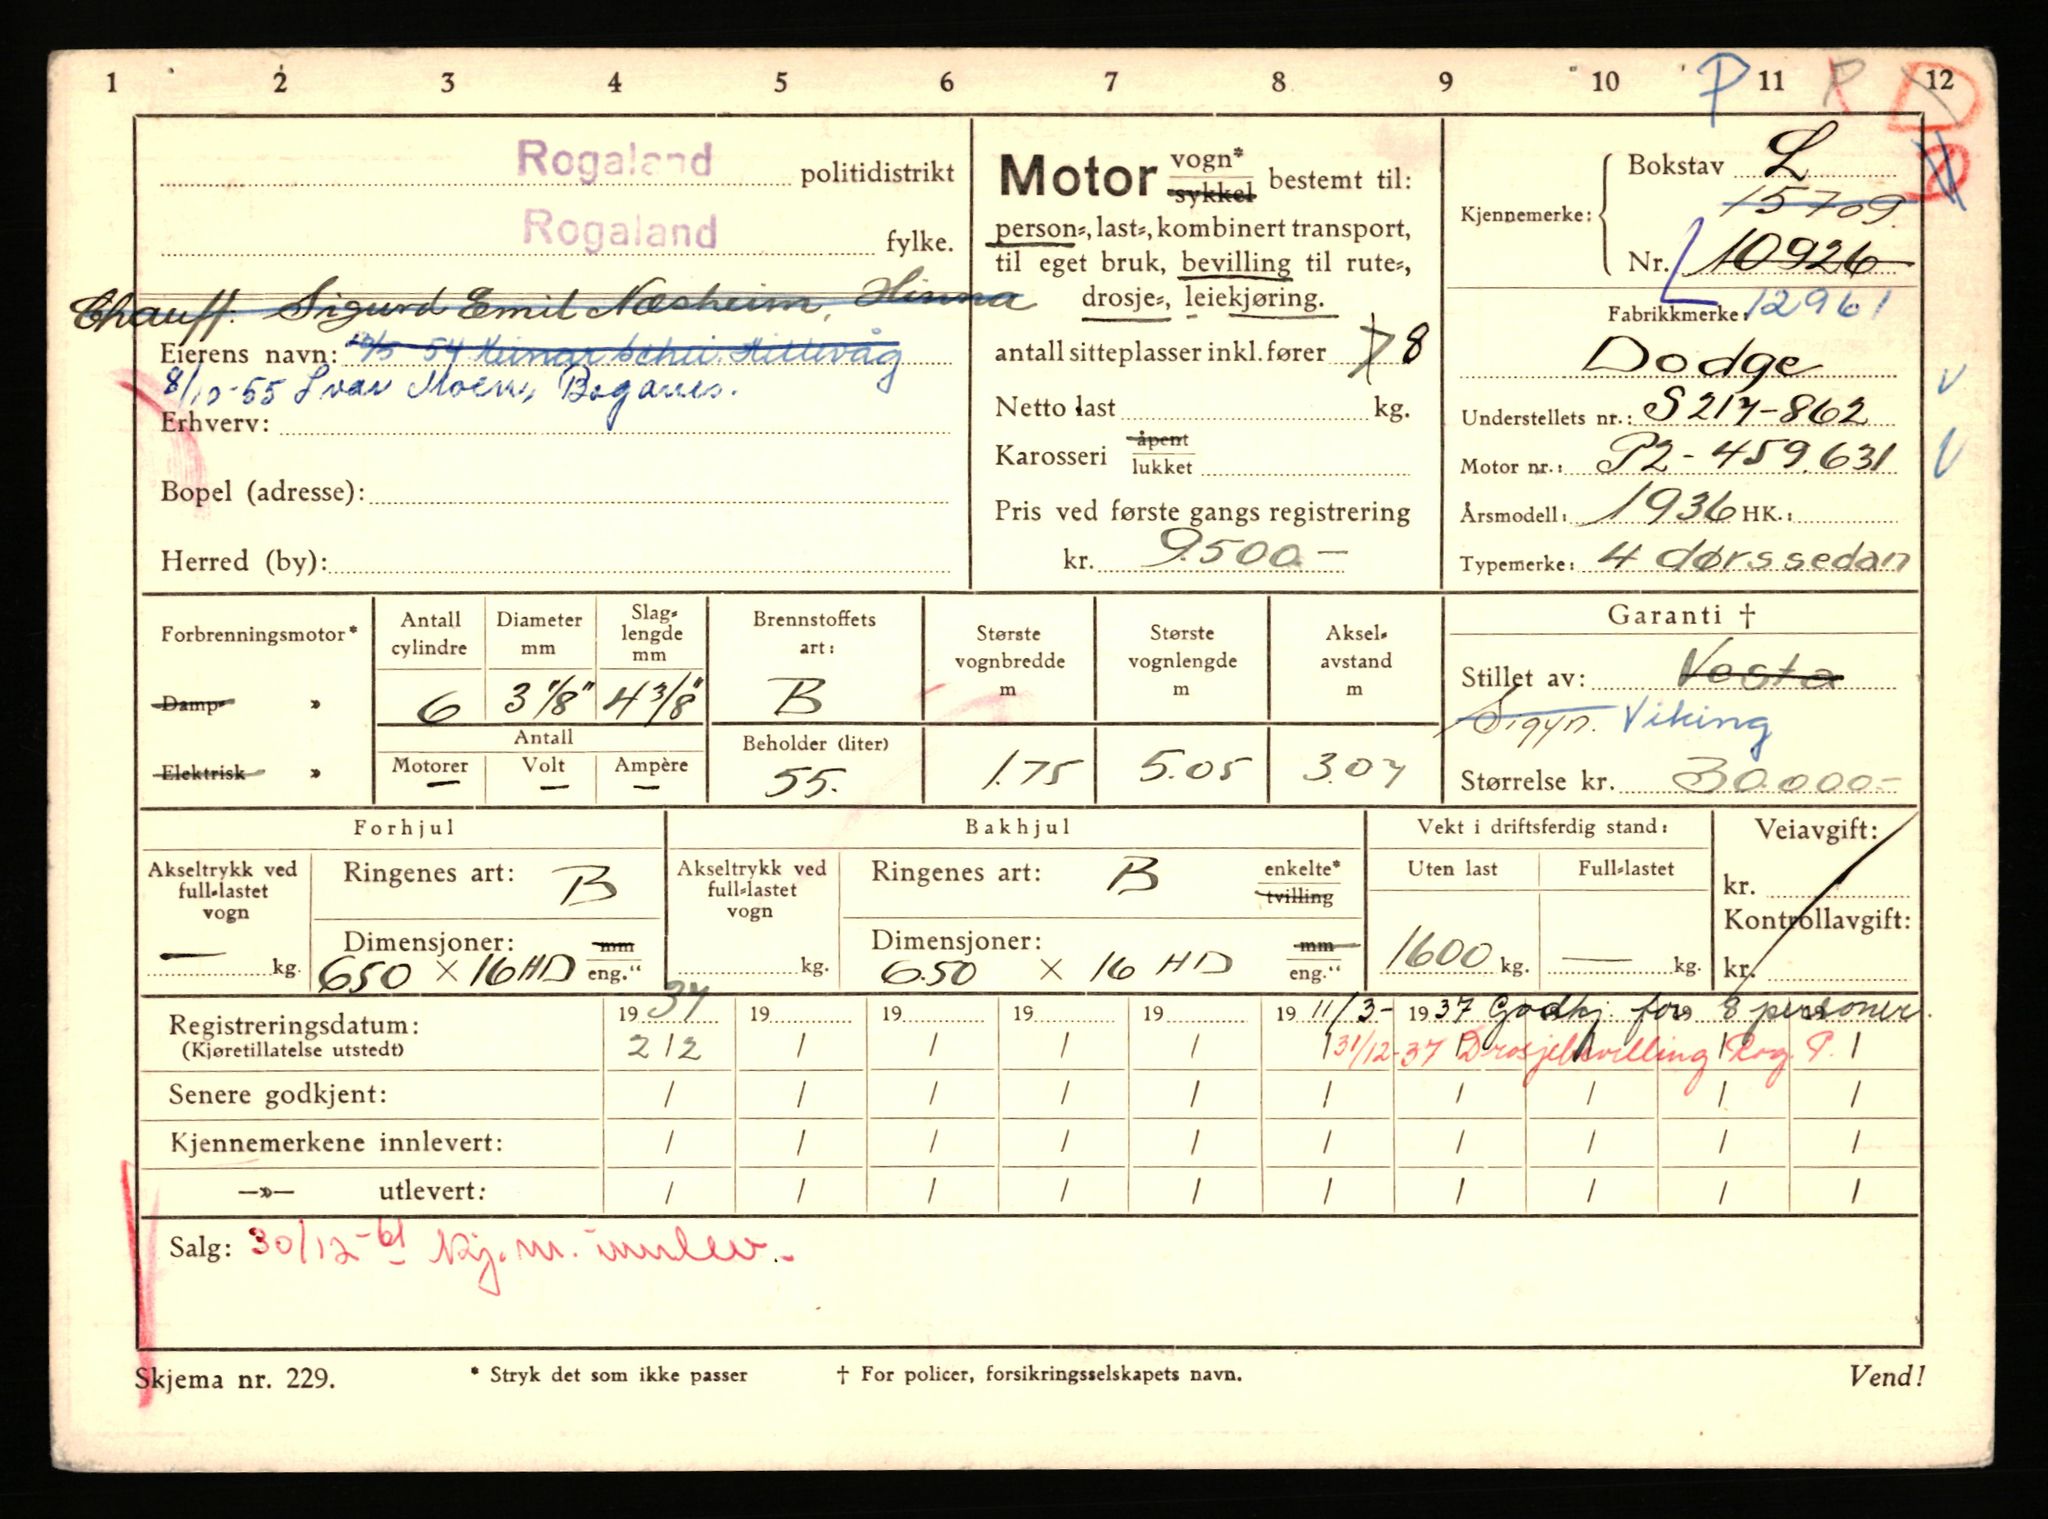 1 2 3 4 5 6 7 8 9 10 11 12
P P D
Rogaland politidistrikt
Rogaland fylke.
Chauff. Sigurd Emil Næsheim, Hinna
Eierens navn: 54 Hillevåg
8/10-55 Ivar Moen, Boganes.
Erhverv:
Bopel (adresse):
Herred (by):
Motor vogn* sykkel bestemt til:
person-, last-, kombinert transport,
til eget bruk, bevilling til rute-,
drosje-, leiekjøring.
antall sitteplasser inkl. fører 7 8
Netto last kg.
Karosseri åpent lukket
Pris ved første gangs registrering
kr. 9.500.—
Kjennemerke: Bokstav L
15709
Nr. 10926
12961
Fabrikkmerke:
Dodge
Understellets nr.: S217-862
Motor nr.: P2-459.631
Årsmodell: 1936 HK.:
Typemerke: 4 dørs sedan
Forbrenningsmotor*
Damp- »
Elektrisk »
Antall cylindre 6
Diameter mm 3 1/8"
Slaglengde mm 4 3/8"
Antall
Motorer — Volt — Ampère —
Brennstoffets art: B
Beholder (liter) 55.
Største vognbredde m 1.75
Største vognlengde m 5.05
Akselavstand m 3.07
Garanti †
Stillet av: Vesta
Sigyn. Viking
Størrelse kr. 30.000.-
Forhjul
Akseltrykk ved full-lastet vogn — kg.
Ringenes art: B
Dimensjoner: mm
650 × 16 HD eng."
Bakhjul
Akseltrykk ved full-lastet vogn kg.
Ringenes art: B enkelte* tvilling
Dimensjoner: mm
6.50 × 16 HD eng."
Vekt i driftsferdig stand:
Uten last 1600 kg.
Full-lastet — kg.
Veiavgift:
kr.
Kontrollavgift:
kr.
Registreringsdatum: 19 37 19 19 19 19 19 11/3- 1937 Godkj. for 8 personer.
(Kjøretillatelse utstedt) 2/2 31/12-37 Drosjebevilling Rog. P.
Senere godkjent:
Kjennemerkene innlevert:
—»— utlevert:
Salg: 30/12-61 Kj.m. innlev.-
Skjema nr. 229. * Stryk det som ikke passer † For policer, forsikringsselskapets navn. Vend!